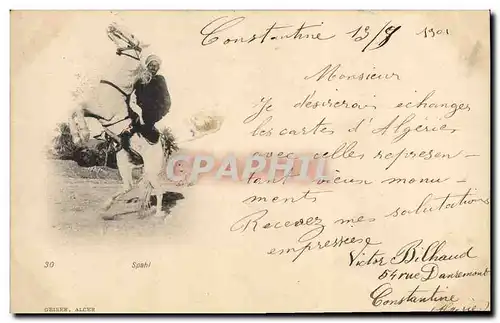 Constantine 13/9 1901
Monsieur
Je désirerais échanger
les cartes d'Algérie
avec celles représen-
tant vieux monu-
ments
Recevez mes salutations
empressées
Victor Bilhaud
54 rue Damrémont
Constantine
(Algérie)
CPHAPTI
30 Spahi
GEISER, ALGER